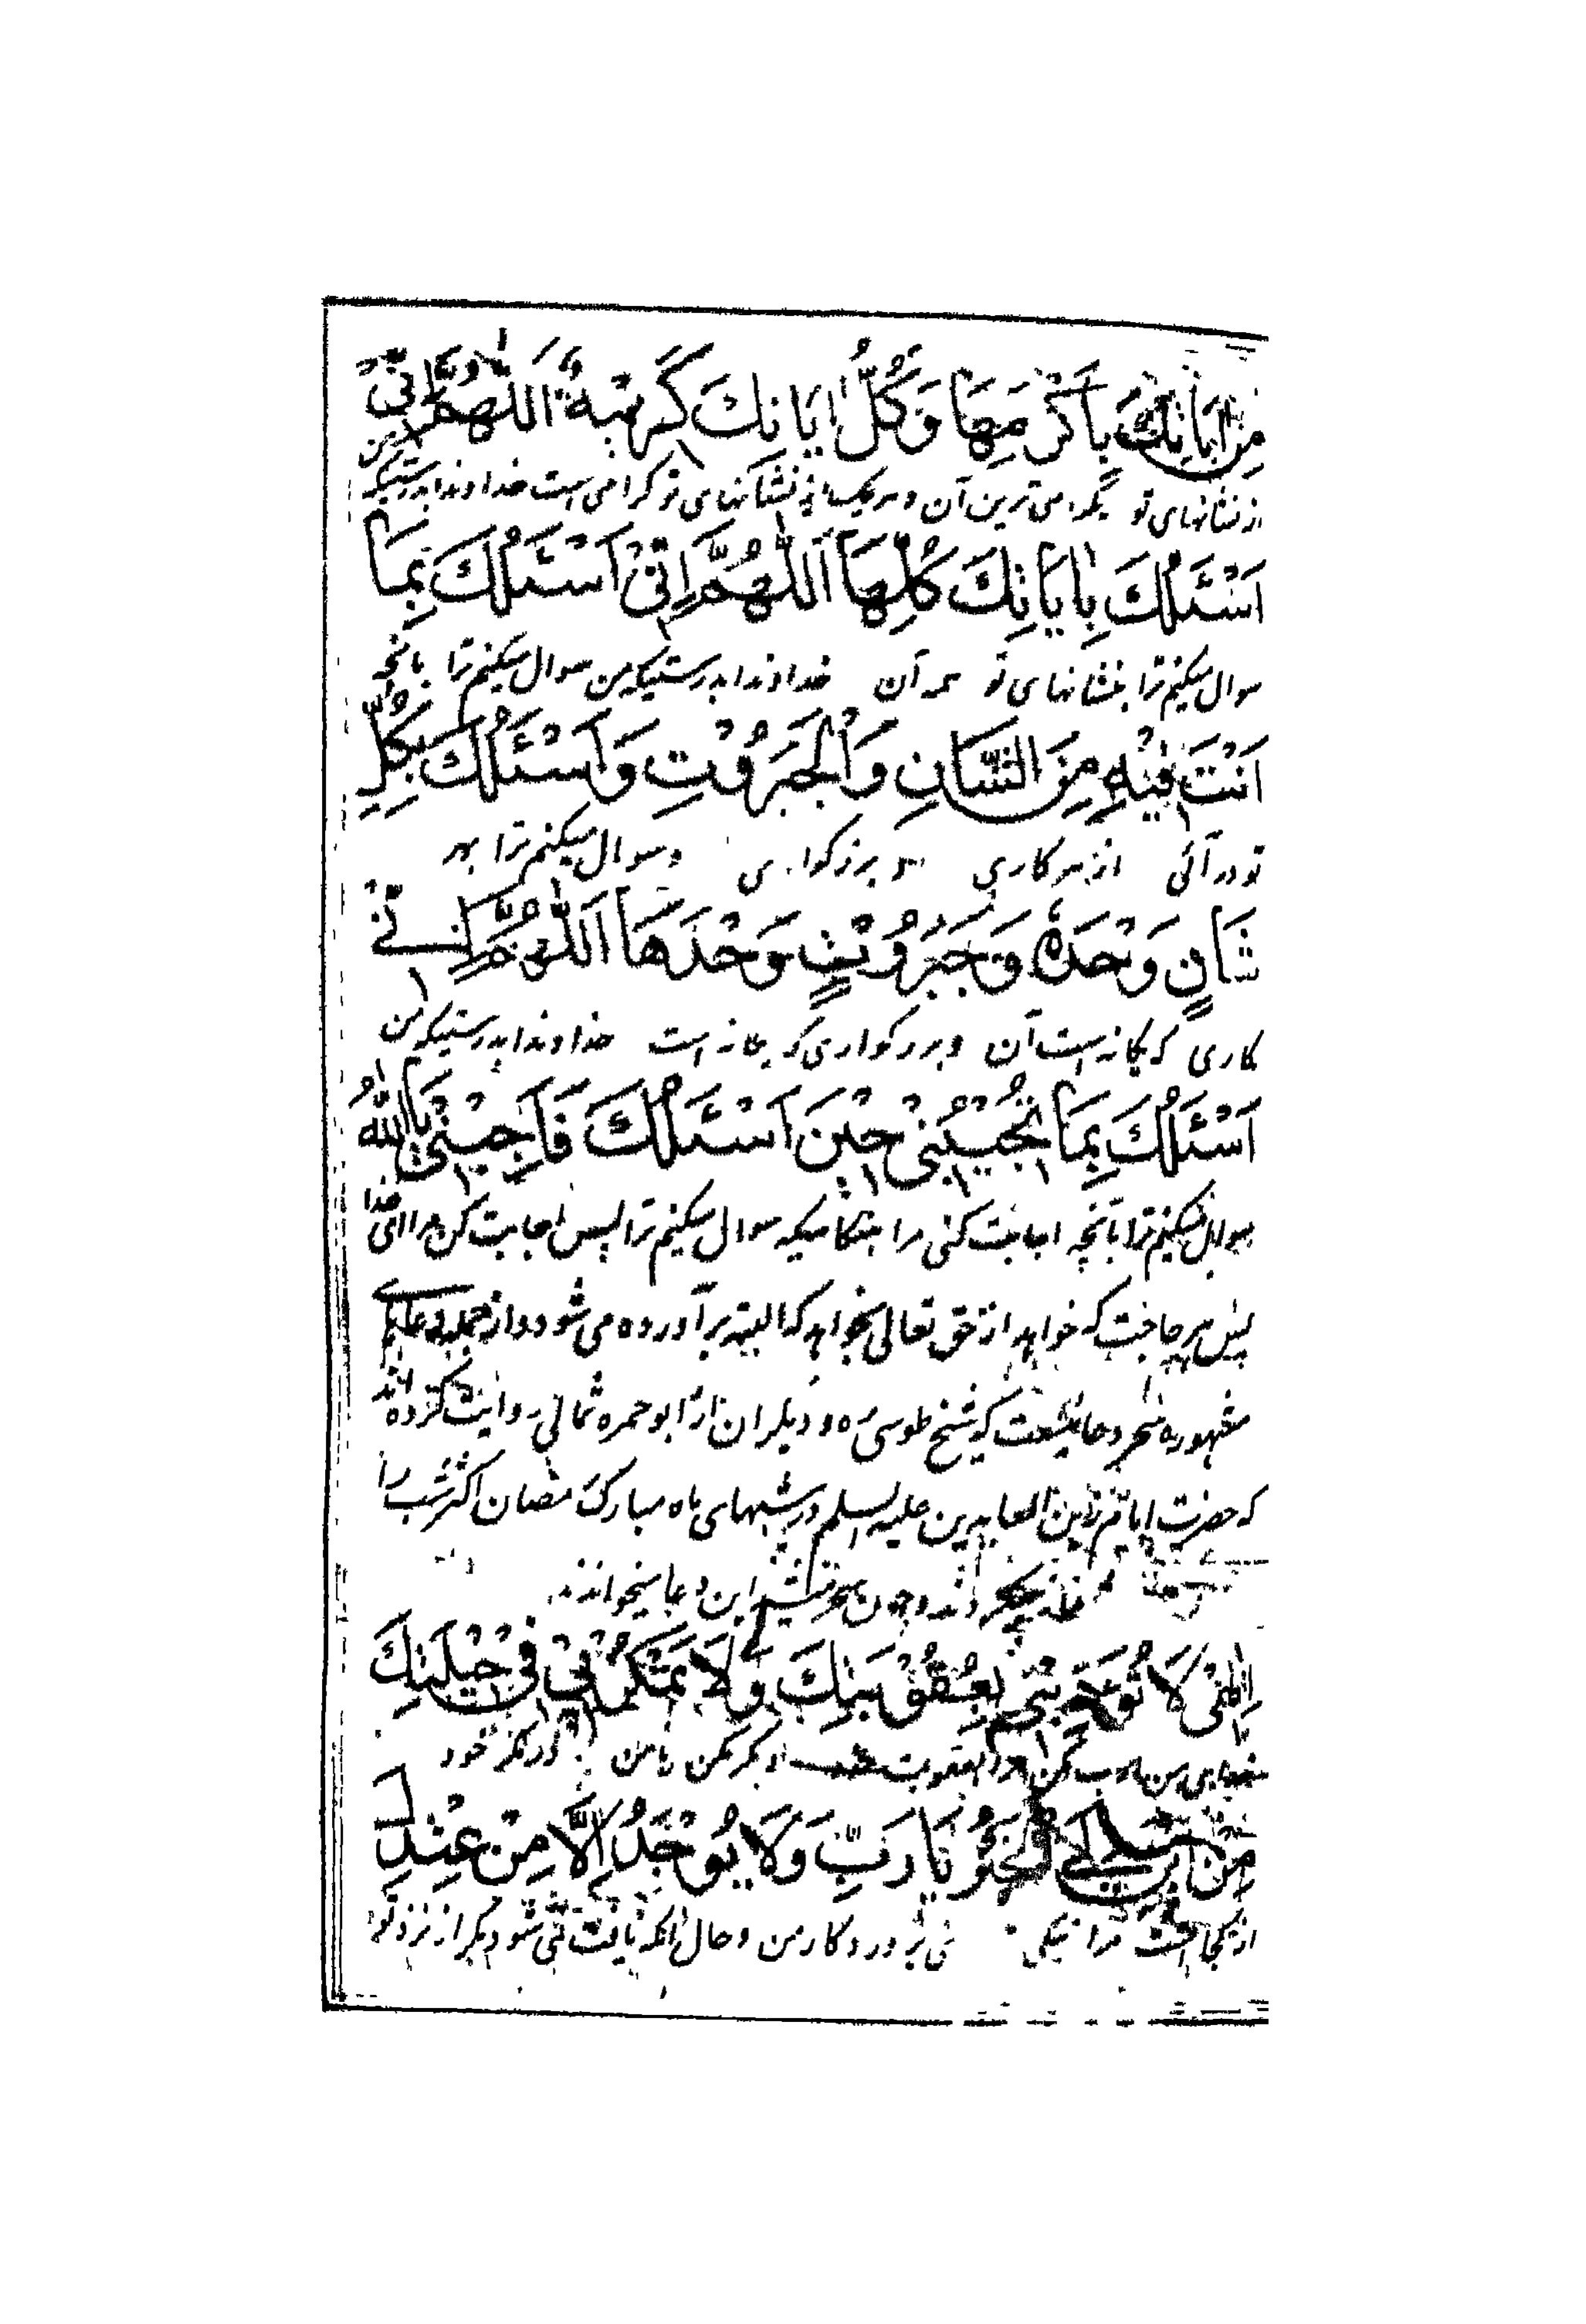 مِنْ اٰيَاتِكَ بِاَكْرَمِهَا وَكُلُّ اٰيَاتِكَ كَرِيْمَةٌ اَللّٰهُمَّ اِنِّيْ
از نشانهای تو بگرامی ترین آن و هریک از نشانهای تو گرامی است خداوندا بدرستیکه من
اَسْئَلُكَ بِاٰيَاتِكَ كُلِّهَا اَللّٰهُمَّ اِنِّيْ اَسْئَلُكَ بِمَا
سوال میکنم ترا بنشانهای تو همه آن خداوندا بدرستیکه من سوال میکنم ترا بانچه
اَنْتَ فِيْهِ مِنَ الشَّاْنِ وَالْجَبَرُوْتِ وَاَسْئَلُكَ بِكُلِّ
تو در آئی از هر کاری و بزرگواری و سوال میکنم ترا بهر
شَاْنٍ وَحْدَهٗ وَجَبَرُوْتٍ وَحْدَهَا اَللّٰهُمَّ اِنِّيْ
کاری که یگانه است آن و بزرگواری که یگانه است خداوندا بدرستیکه من
اَسْئَلُكَ بِمَا تُجِيْبُنِيْ حِيْنَ اَسْئَلُكَ فَاَجِبْنِيْ يَا اَللّٰهُ
سوال میکنم ترا بانچه اجابت کنی مرا هنگامیکه سوال میکنم ترا پس اجابت کن مرا ای خدا
پس هر حاجت که خواهد از حق تعالی بخواهد که البته برآورده می شود و از جمله دعاهای
مشهوره سحر دعائیست که شیخ طوسی ره و دیگران از ابو حمزه ثمالی روایت کرده اند
که حضرت امام زین العابدین علیه السلم در شبهای ماه مبارک رمضان اکثر شب را
نماز میکردند و چون سحر میشد این دعا میخواندند
اِلٰهِيْ لَا تُؤَدِّبْنِيْ بِعُقُوْبَتِكَ وَلَا تَمْكُرْ بِيْ فِيْ حِيْلَتِكَ
ادب مکن مرا بعقوبت خود و مکر مکن با من در مکر خود
مِنْ اَيْنَ لِيَ الْخَيْرُ يَا رَبِّ وَلَا يُوْجَدُ اِلَّا مِنْ عِنْدِكَ
از کجا است مرا نیکی ای پروردگار من و حال انکه یافت نمی شود مگر از نزد تو